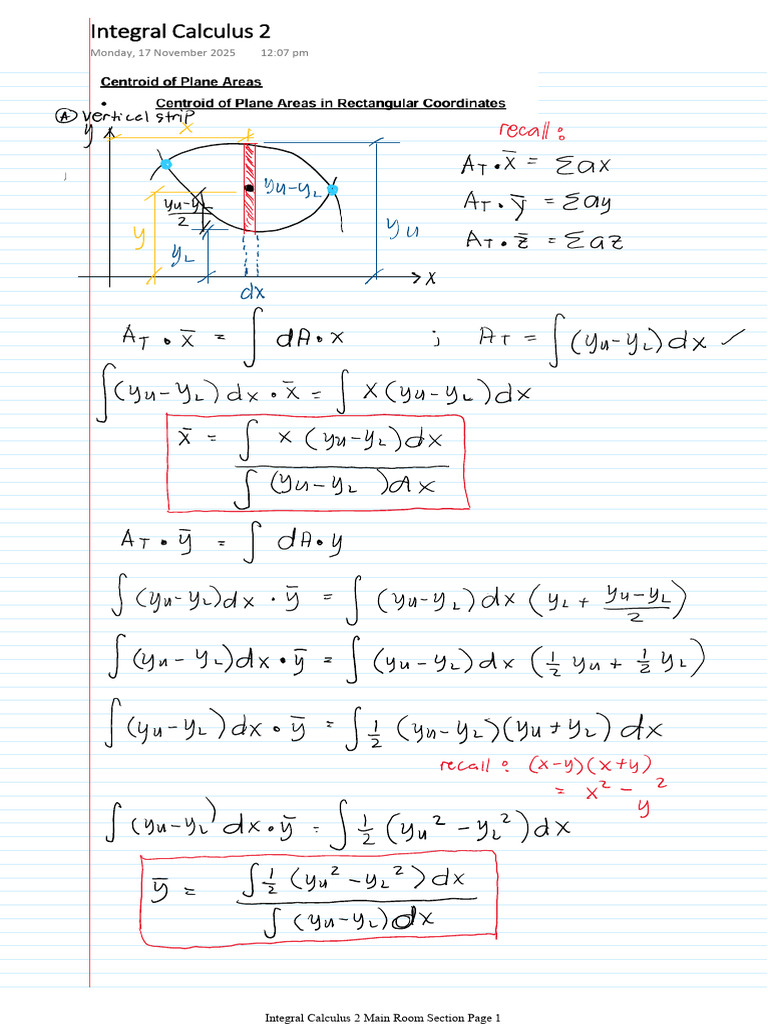 Integral Calculus 2
Monday, 17 November 2025 12:07 pm
Centroid of Plane Areas
• Centroid of Plane Areas in Rectangular Coordinates
Ⓐ vertical strip
recall:
y
x
A_T · x̄ = Σax
yᵤ - y_L
A_T · ȳ = Σay
(yᵤ - y)/2
A_T · z̄ = Σaz
y
y_L
yᵤ
x
dx
A_T · x̄ = ∫ dA · x ; A_T = ∫ (yᵤ - y_L) dx ✓
∫ (yᵤ - y_L) dx · x̄ = ∫ x (yᵤ - y_L) dx
x̄ = ∫ x (yᵤ - y_L) dx
∫ (yᵤ - y_L) dx
A_T · ȳ = ∫ dA · y
∫ (yᵤ - y_L) dx · ȳ = ∫ (yᵤ - y_L) dx (y_L + (yᵤ - y_L)/2)
∫ (yᵤ - y_L) dx · ȳ = ∫ (yᵤ - y_L) dx (½ yᵤ + ½ y_L)
∫ (yᵤ - y_L) dx · ȳ = ∫ ½ (yᵤ - y_L)(yᵤ + y_L) dx
recall: (x-y)(x+y)
= x² - y²
∫ (yᵤ - y_L) dx · ȳ = ∫ ½ (yᵤ² - y_L²) dx
ȳ = ∫ ½ (yᵤ² - y_L²) dx
∫ (yᵤ - y_L) dx
Integral Calculus 2 Main Room Section Page 1